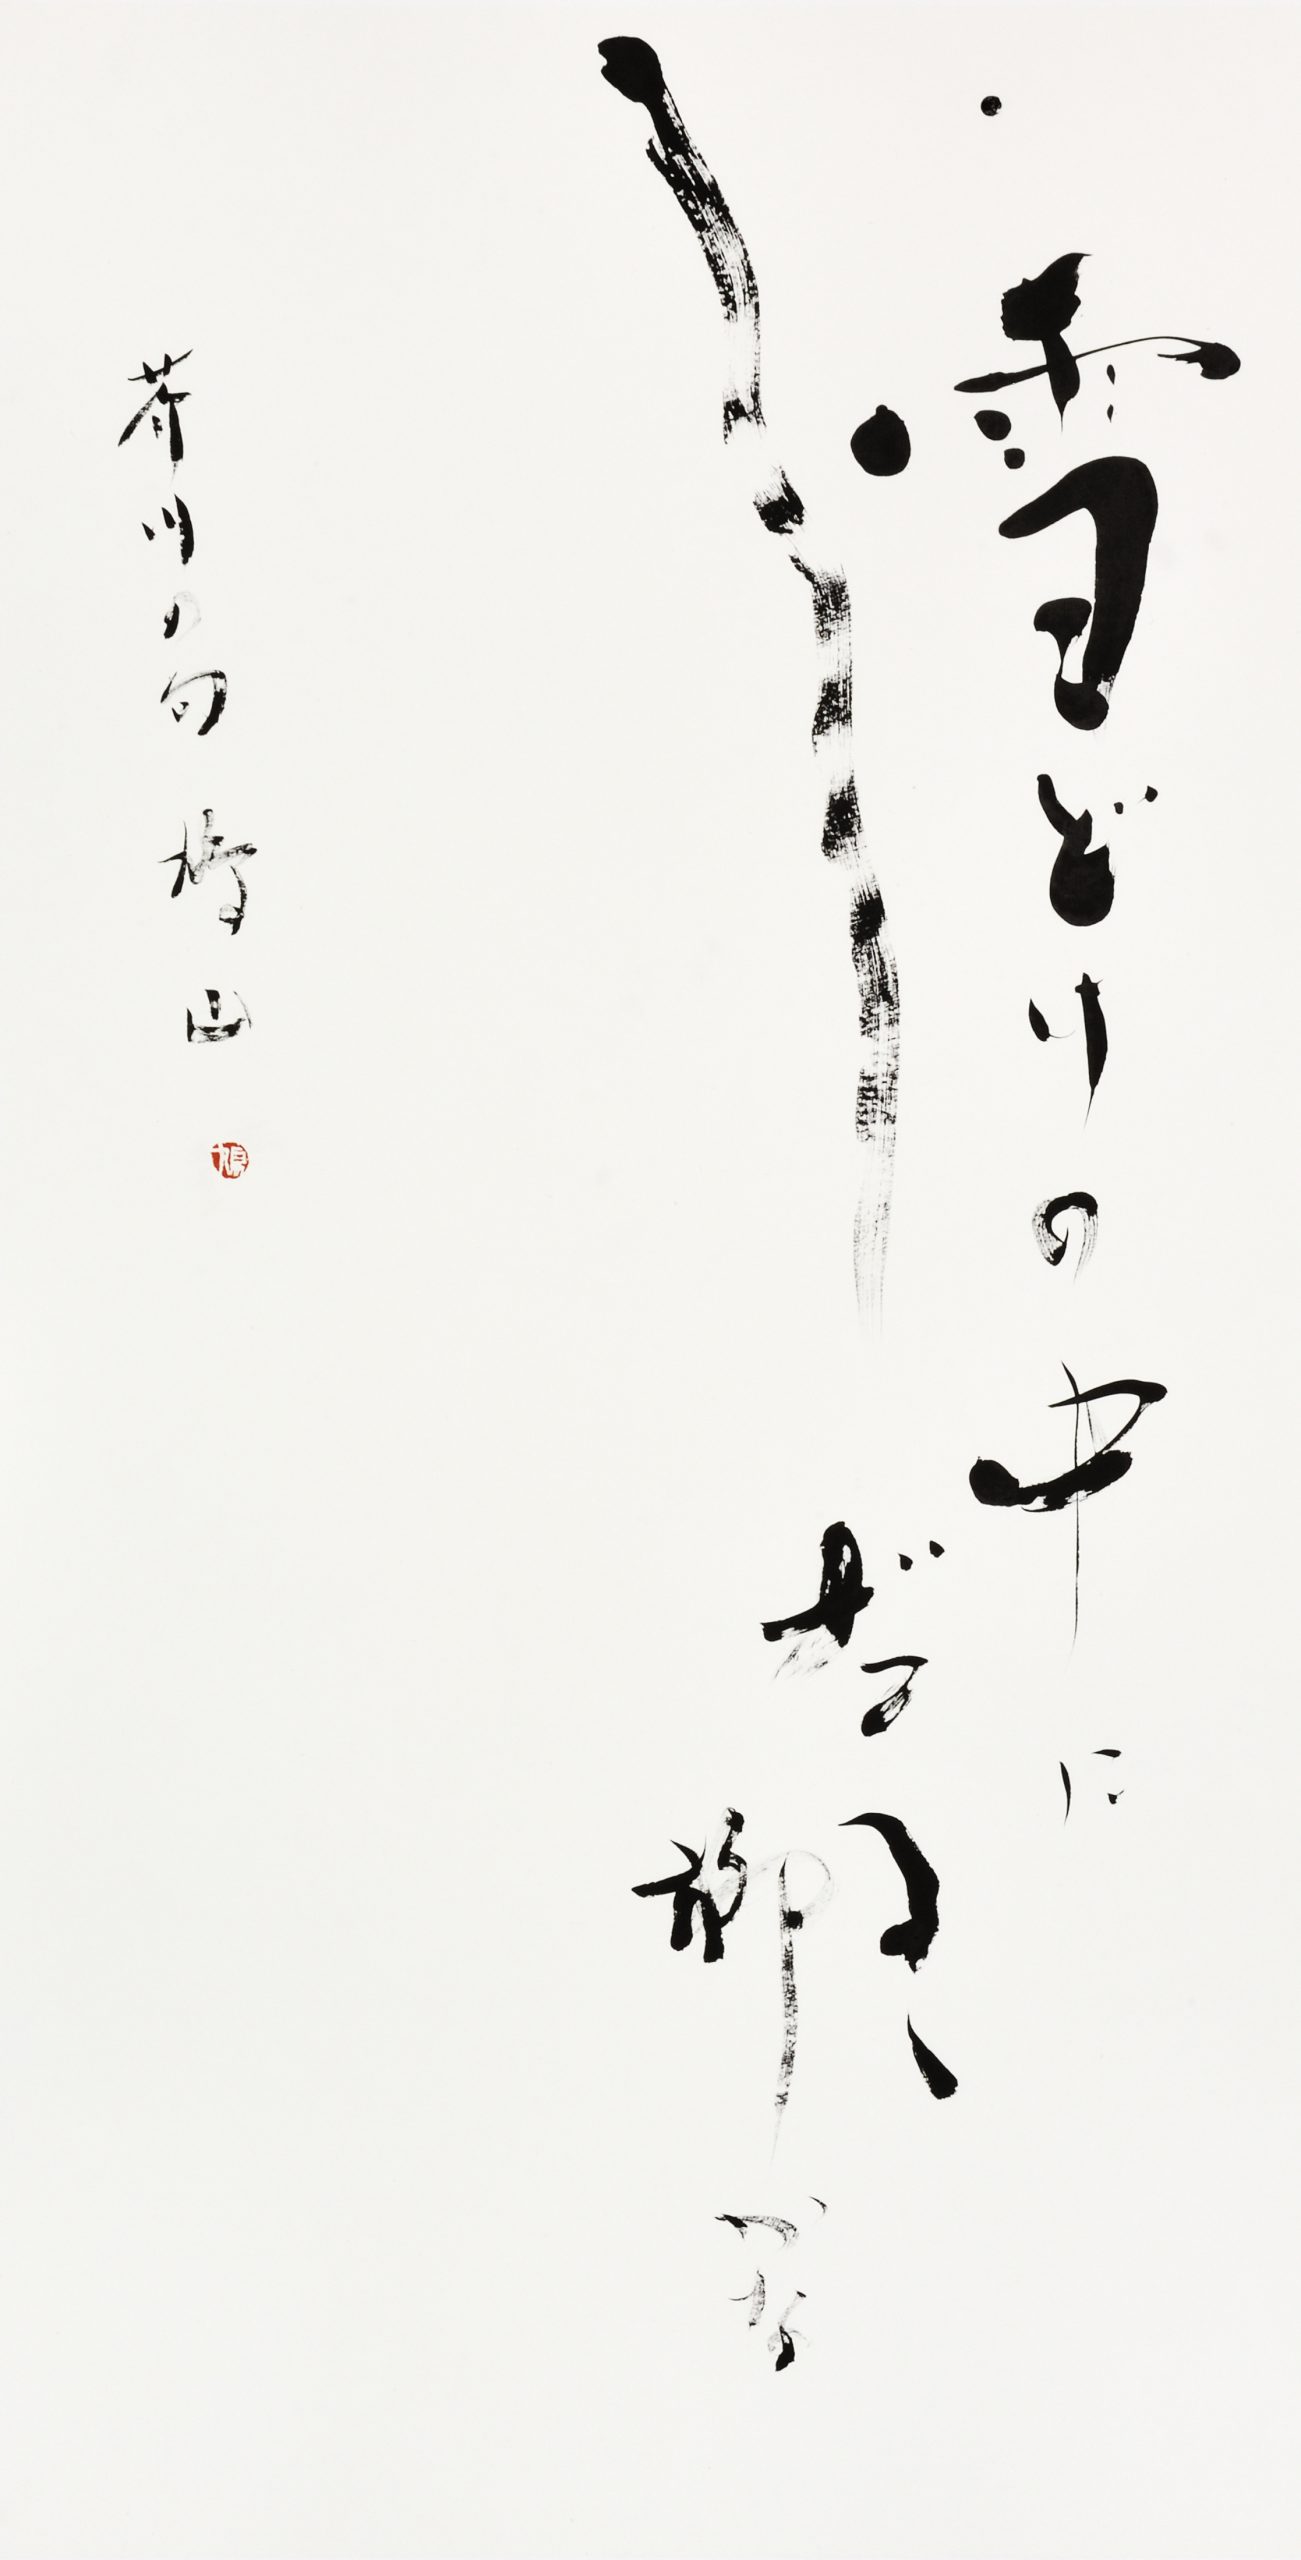 雪どけの中に
しだるゝ柳かな
芥川の句